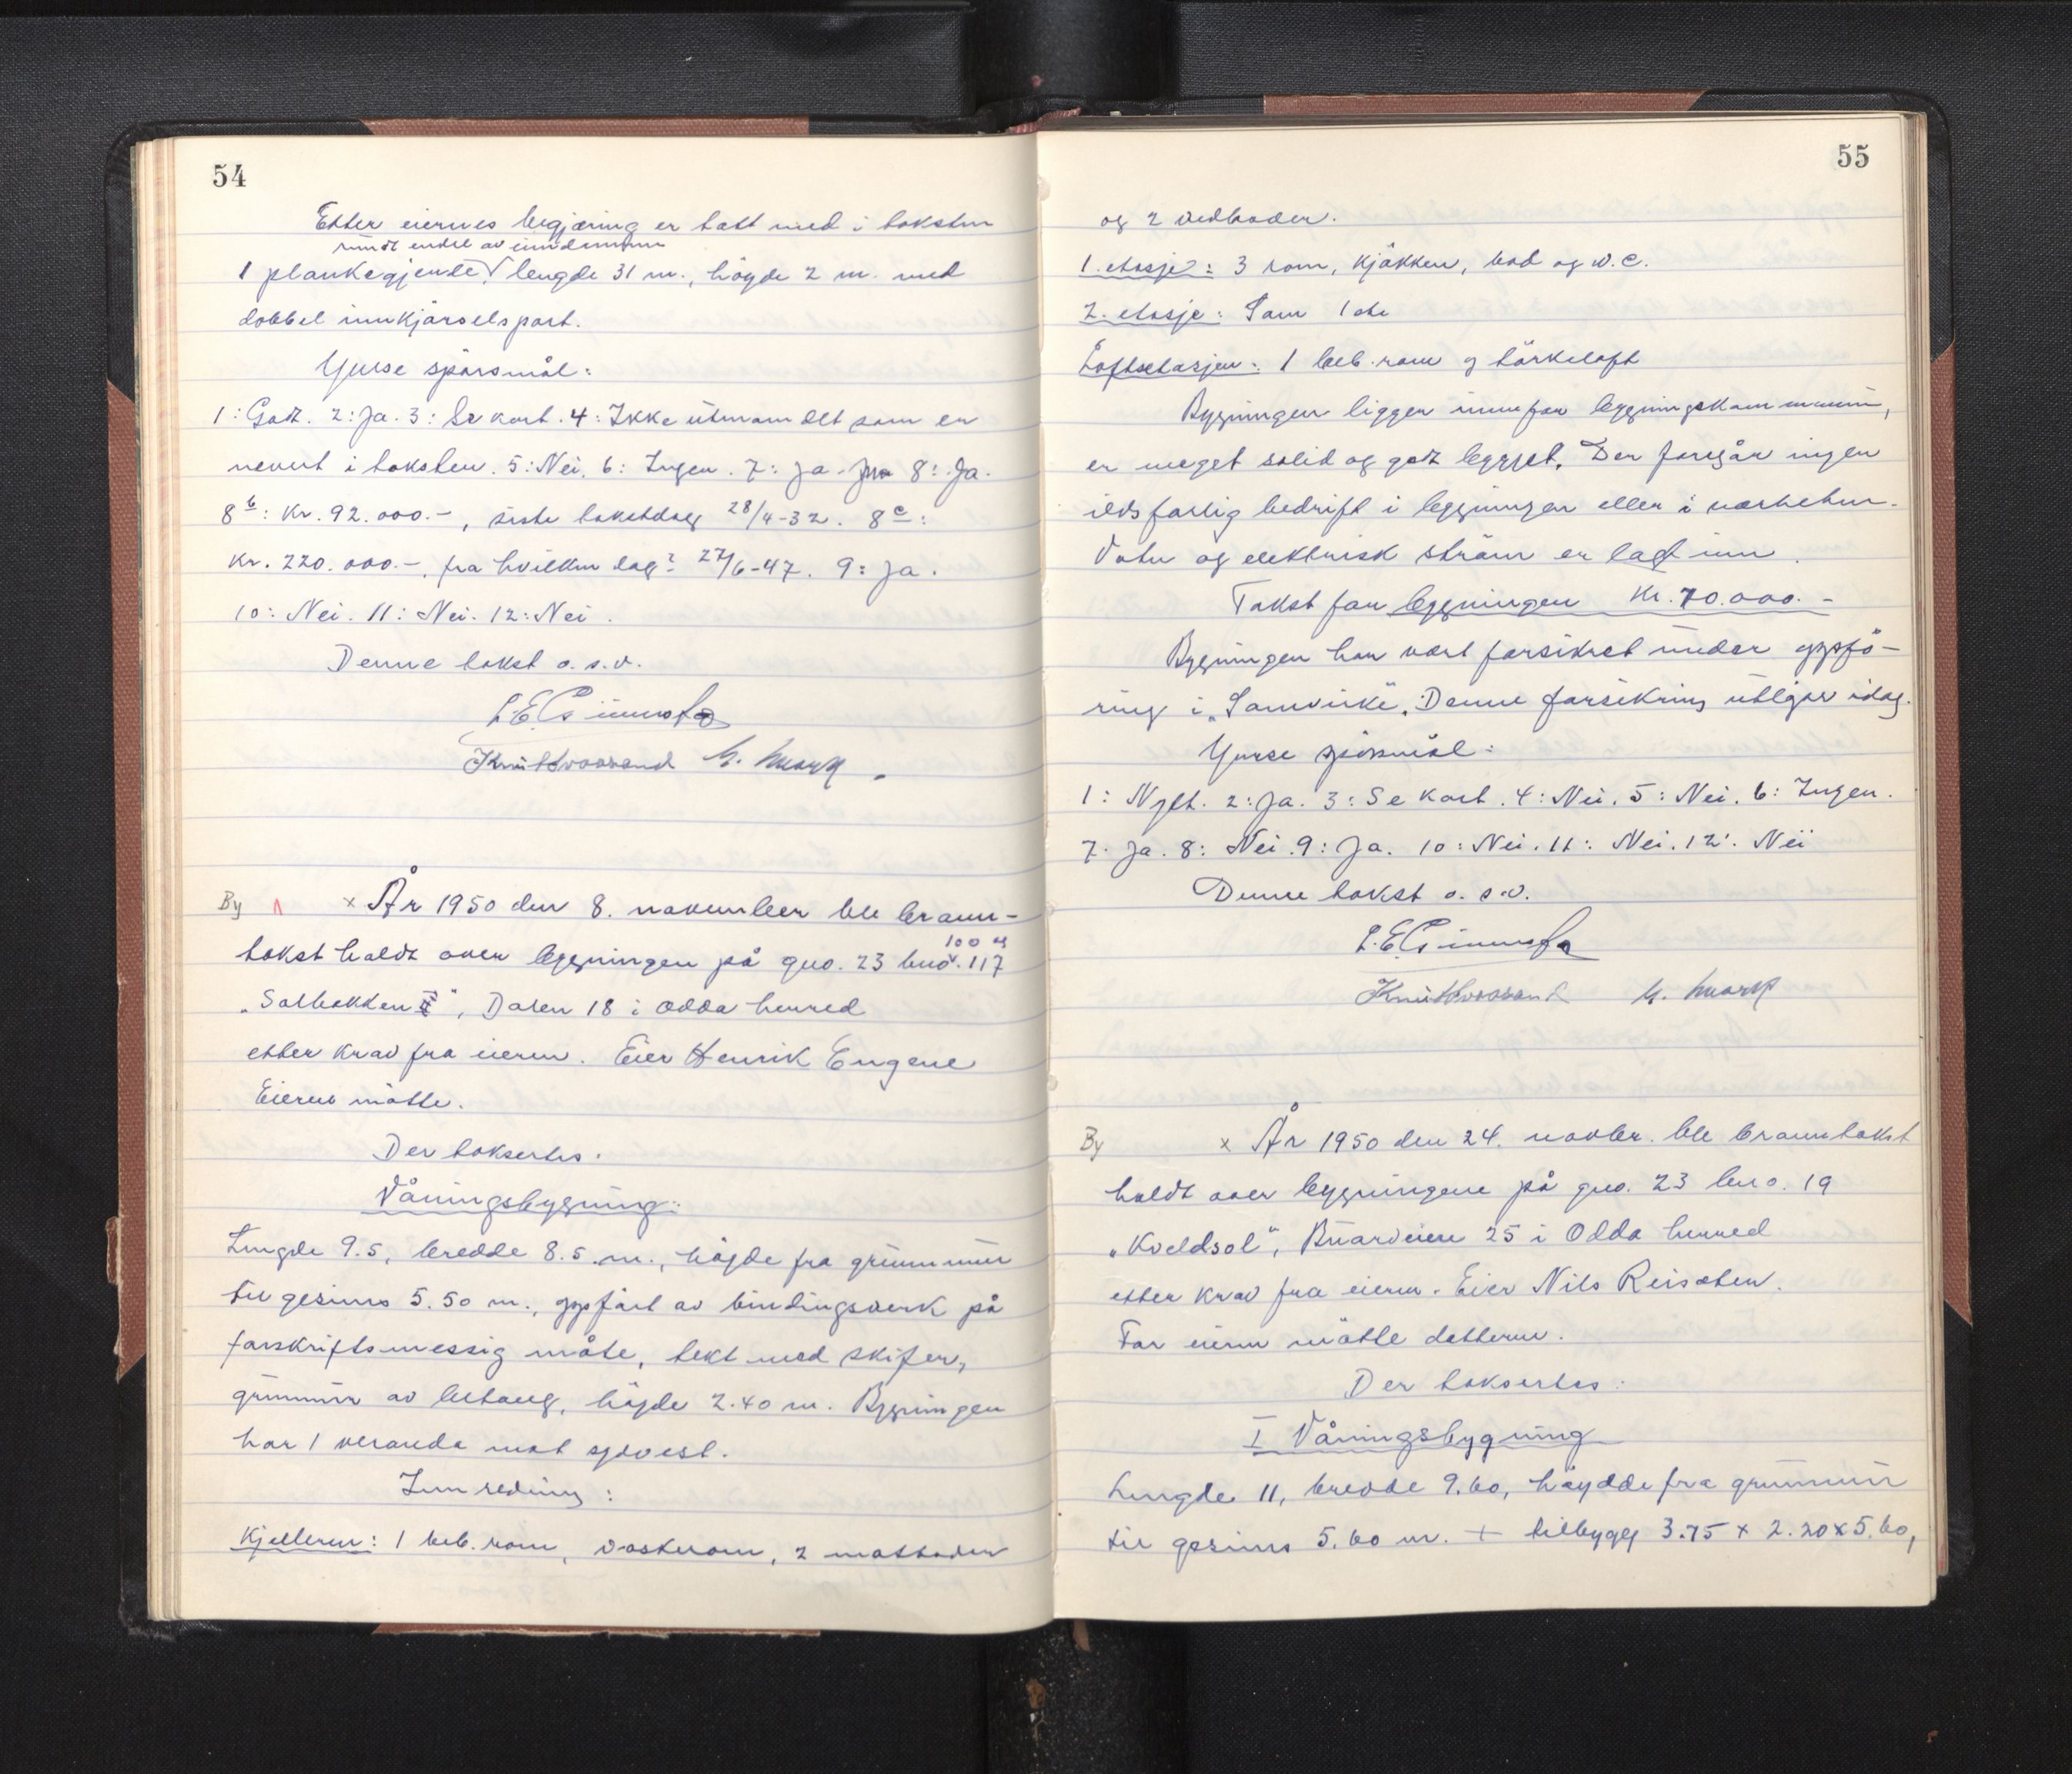 54
Etter eiernes begjæring er tatt med i taksten
rundt endel av eiendommen
1 plankegjerde √ lengde 31 m., høyde 2 m. med
dobbel innkjørselsport.
Ymse spørsmål:
1: Godt. 2: Ja. 3: Se kart. 4: Ikke utenom det som er
nevnt i taksten. 5: Nei. 6: Ingen. 7: Ja. 8: Ja.
8b: Kr. 92.000.-, siste takstdag 28/4-32. 8c:
Kr. 220.000.-, fra hvilken dag? 27/6-47. 9: Ja.
10: Nei. 11: Nei. 12: Nei.
Denne takst o.s.v.
By x År 1950 den 8. november ble brann-
100 og
takst holdt over bygningen på gno. 23 bno. 117
„Solbakken", Dalen 18 i Odda herred
etter krav fra eieren. Eier Henrik Eugene
Eieren møtte.
Der taksertes:
Våningsbygning:
Lengde 9.5, bredde 8.5 m., høyde fra grunnmur
til gesims 5.50 m., oppført av bindingsverk på
forskriftsmessig måte, tekt med skifer,
grunnmur av betong, høyde 2.40 m. Bygningen
har 1 veranda mot sydvest.
Innredning:
Kjelleren: 1 beb. rom, vaskerom, 2 matboder
55
og 2 vedboder.
1. etasje: 3 rom, kjøkken, bad og W.C.
2. etasje: Som 1ste
Loftsetasjen: 1 beb. rom og tørkeloft
Bygningen ligger innefor bygningskommunen,
er meget solid og godt bygget. Der foregår ingen
ildsfarlig bedrift i bygningen eller i nærheten.
Vatn og elektrisk strøm er lagt inn.
Takst for bygningen Kr. 70.000.-
Bygningen har vært forsikret under oppfø-
ring i „Samvirke". Denne forsikring utløper idag.
Ymse spørsmål:
1: Nytt. 2: Ja. 3: Se kart. 4: Nei. 5: Nei. 6: Ingen.
7: Ja. 8: Nei. 9: Ja. 10: Nei. 11: Nei. 12: Nei
Denne takst o.s.v.
By x År 1950 den 24. novbr. ble branntakst
holdt over bygningene på gno. 23 bno. 19
„Kveldsol", Buarveien 25 i Odda herred
etter krav fra eieren. Eier Nils Reisæter.
For eieren møtte datteren.
Der taksertes:
I Våningsbygning
Lengde 11, bredde 9.60, høydde fra grunnmur
til gesims 5.60 m. + tilbygg 3.75 x 2.20 x 5.60,